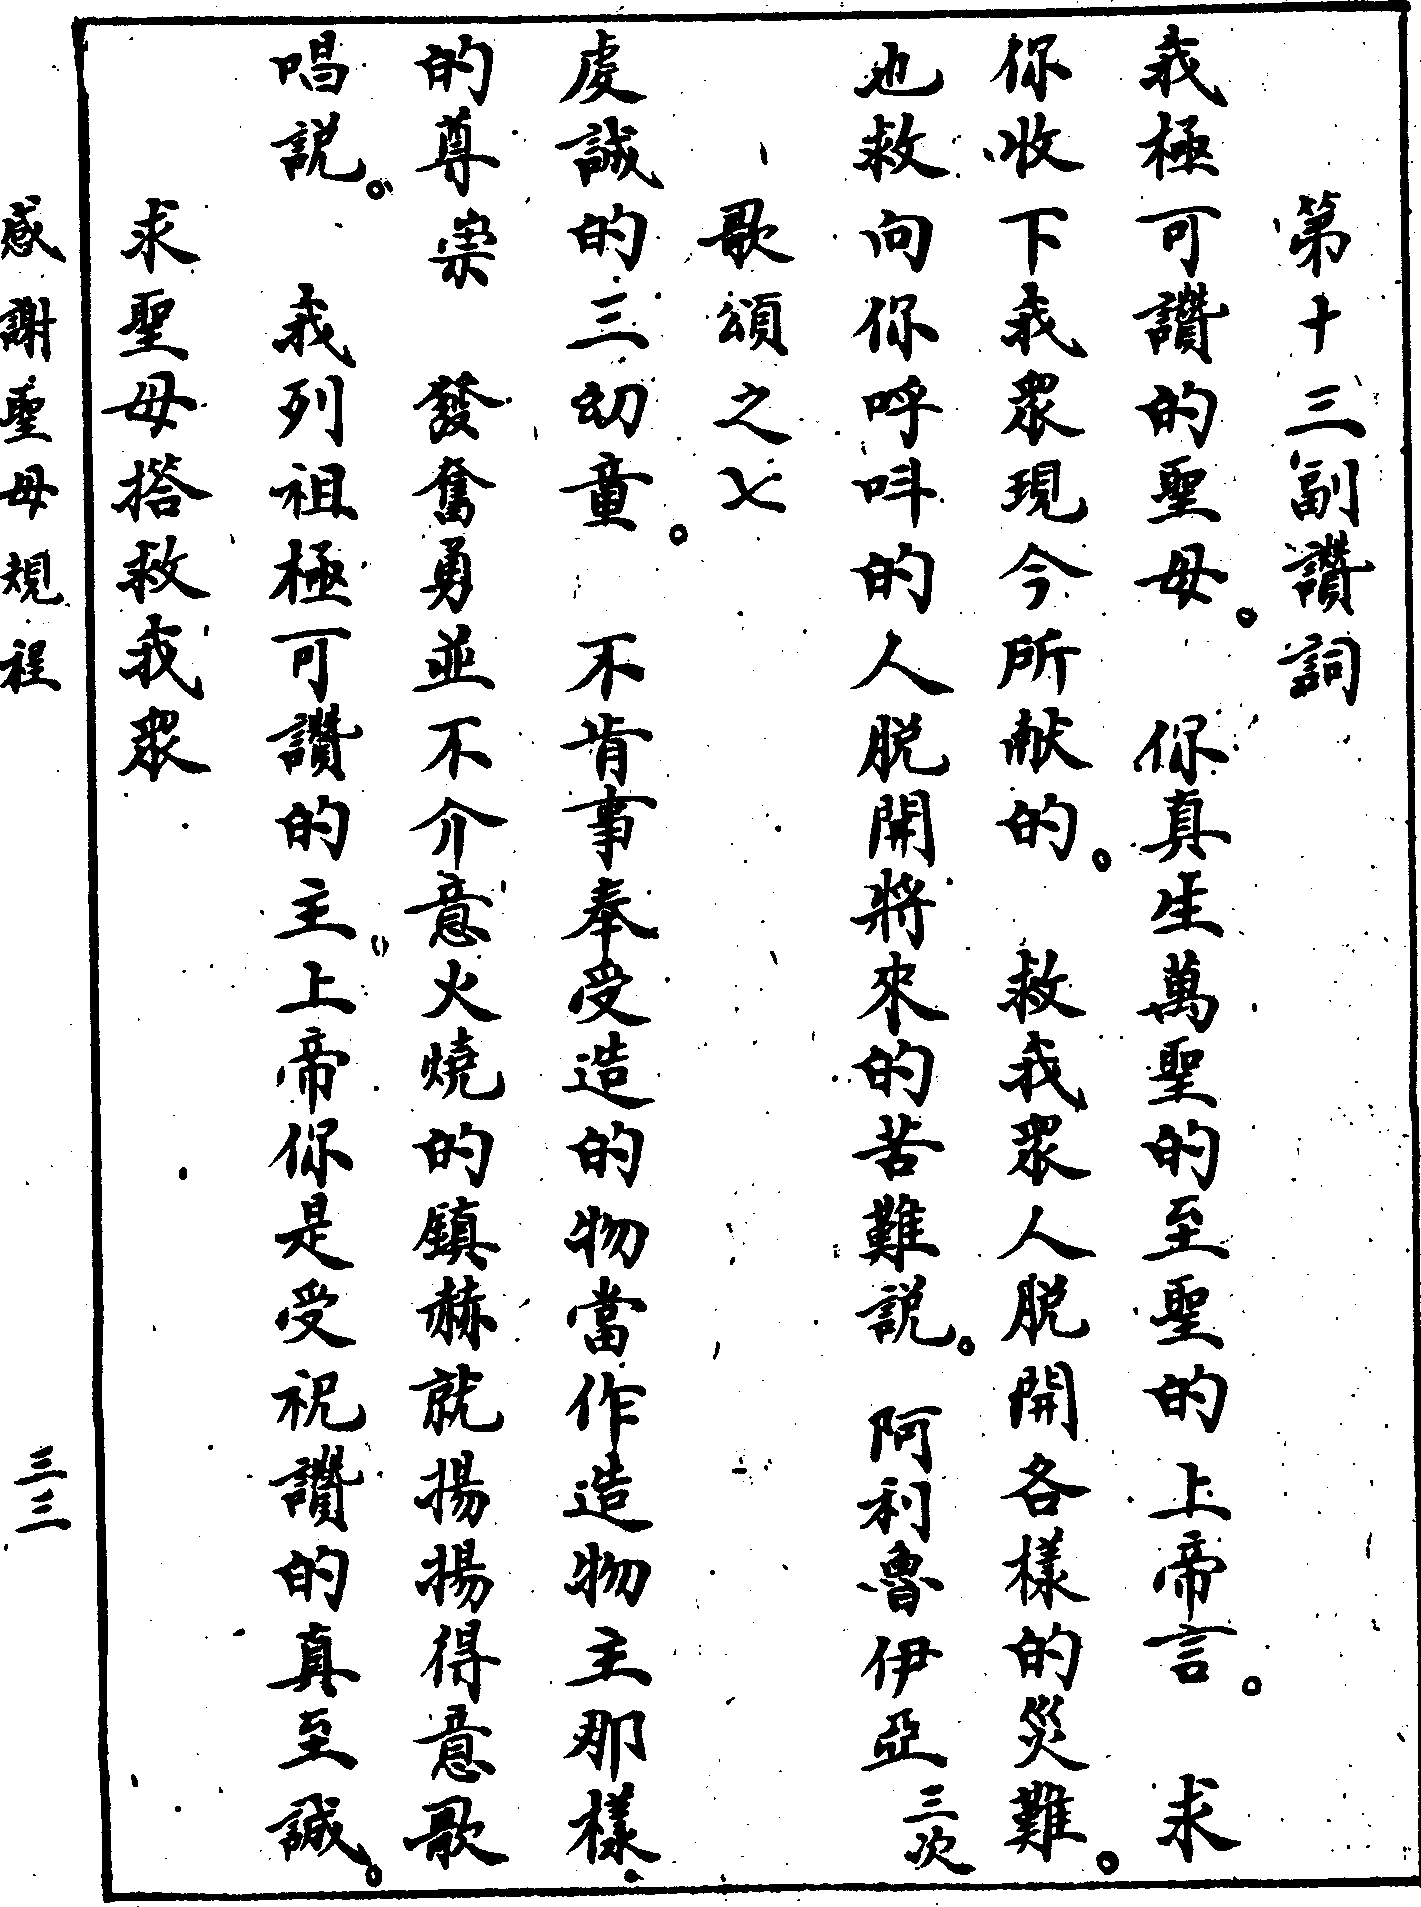 第十三副讚詞
我極可讚的聖母。　你真生萬聖的至聖的上帝言。　求
你收下我眾現今所献的。　救我眾人脫開各樣的災難。
也救向你呼呌的人脫開將來的苦難説。　阿利魯伊亞三次
歌頌之七
虔誠的三幼童。　不肯事奉受造的物當作造物主那樣
的尊崇　發奮勇並不介意火燒的鎮赫就揚揚得意歌
唱説。　我列祖極可讚的主上帝你是受祝讚的真至誠。
求聖母搭救我眾
感謝聖母規程
三三